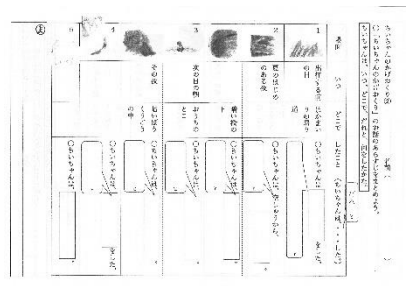 ちいちゃんのかげおくり(2)
○「ちいちゃんのかげおくり」のお話のあらすじをまとめよう。
ちいちゃんは、いつ、どこで、だれと、何をしたかな。
場面
いつ
どこで
したこと(ちいちゃんは、・・・した。)
だれと
1
出征する前の日
はかまいりの帰り道
○ちいちゃんは
をした。
2
夏のはじめのある夜
暗い橋の下
○ちいちゃんは、空しゅうから、
3
次の日の朝
おうちのとこ
○ちいちゃんは、
4
その夜
暗いぼうくうごうの中
○ちいちゃんは、
○ちいちゃんは、
をした。
5
○ちいちゃんは、